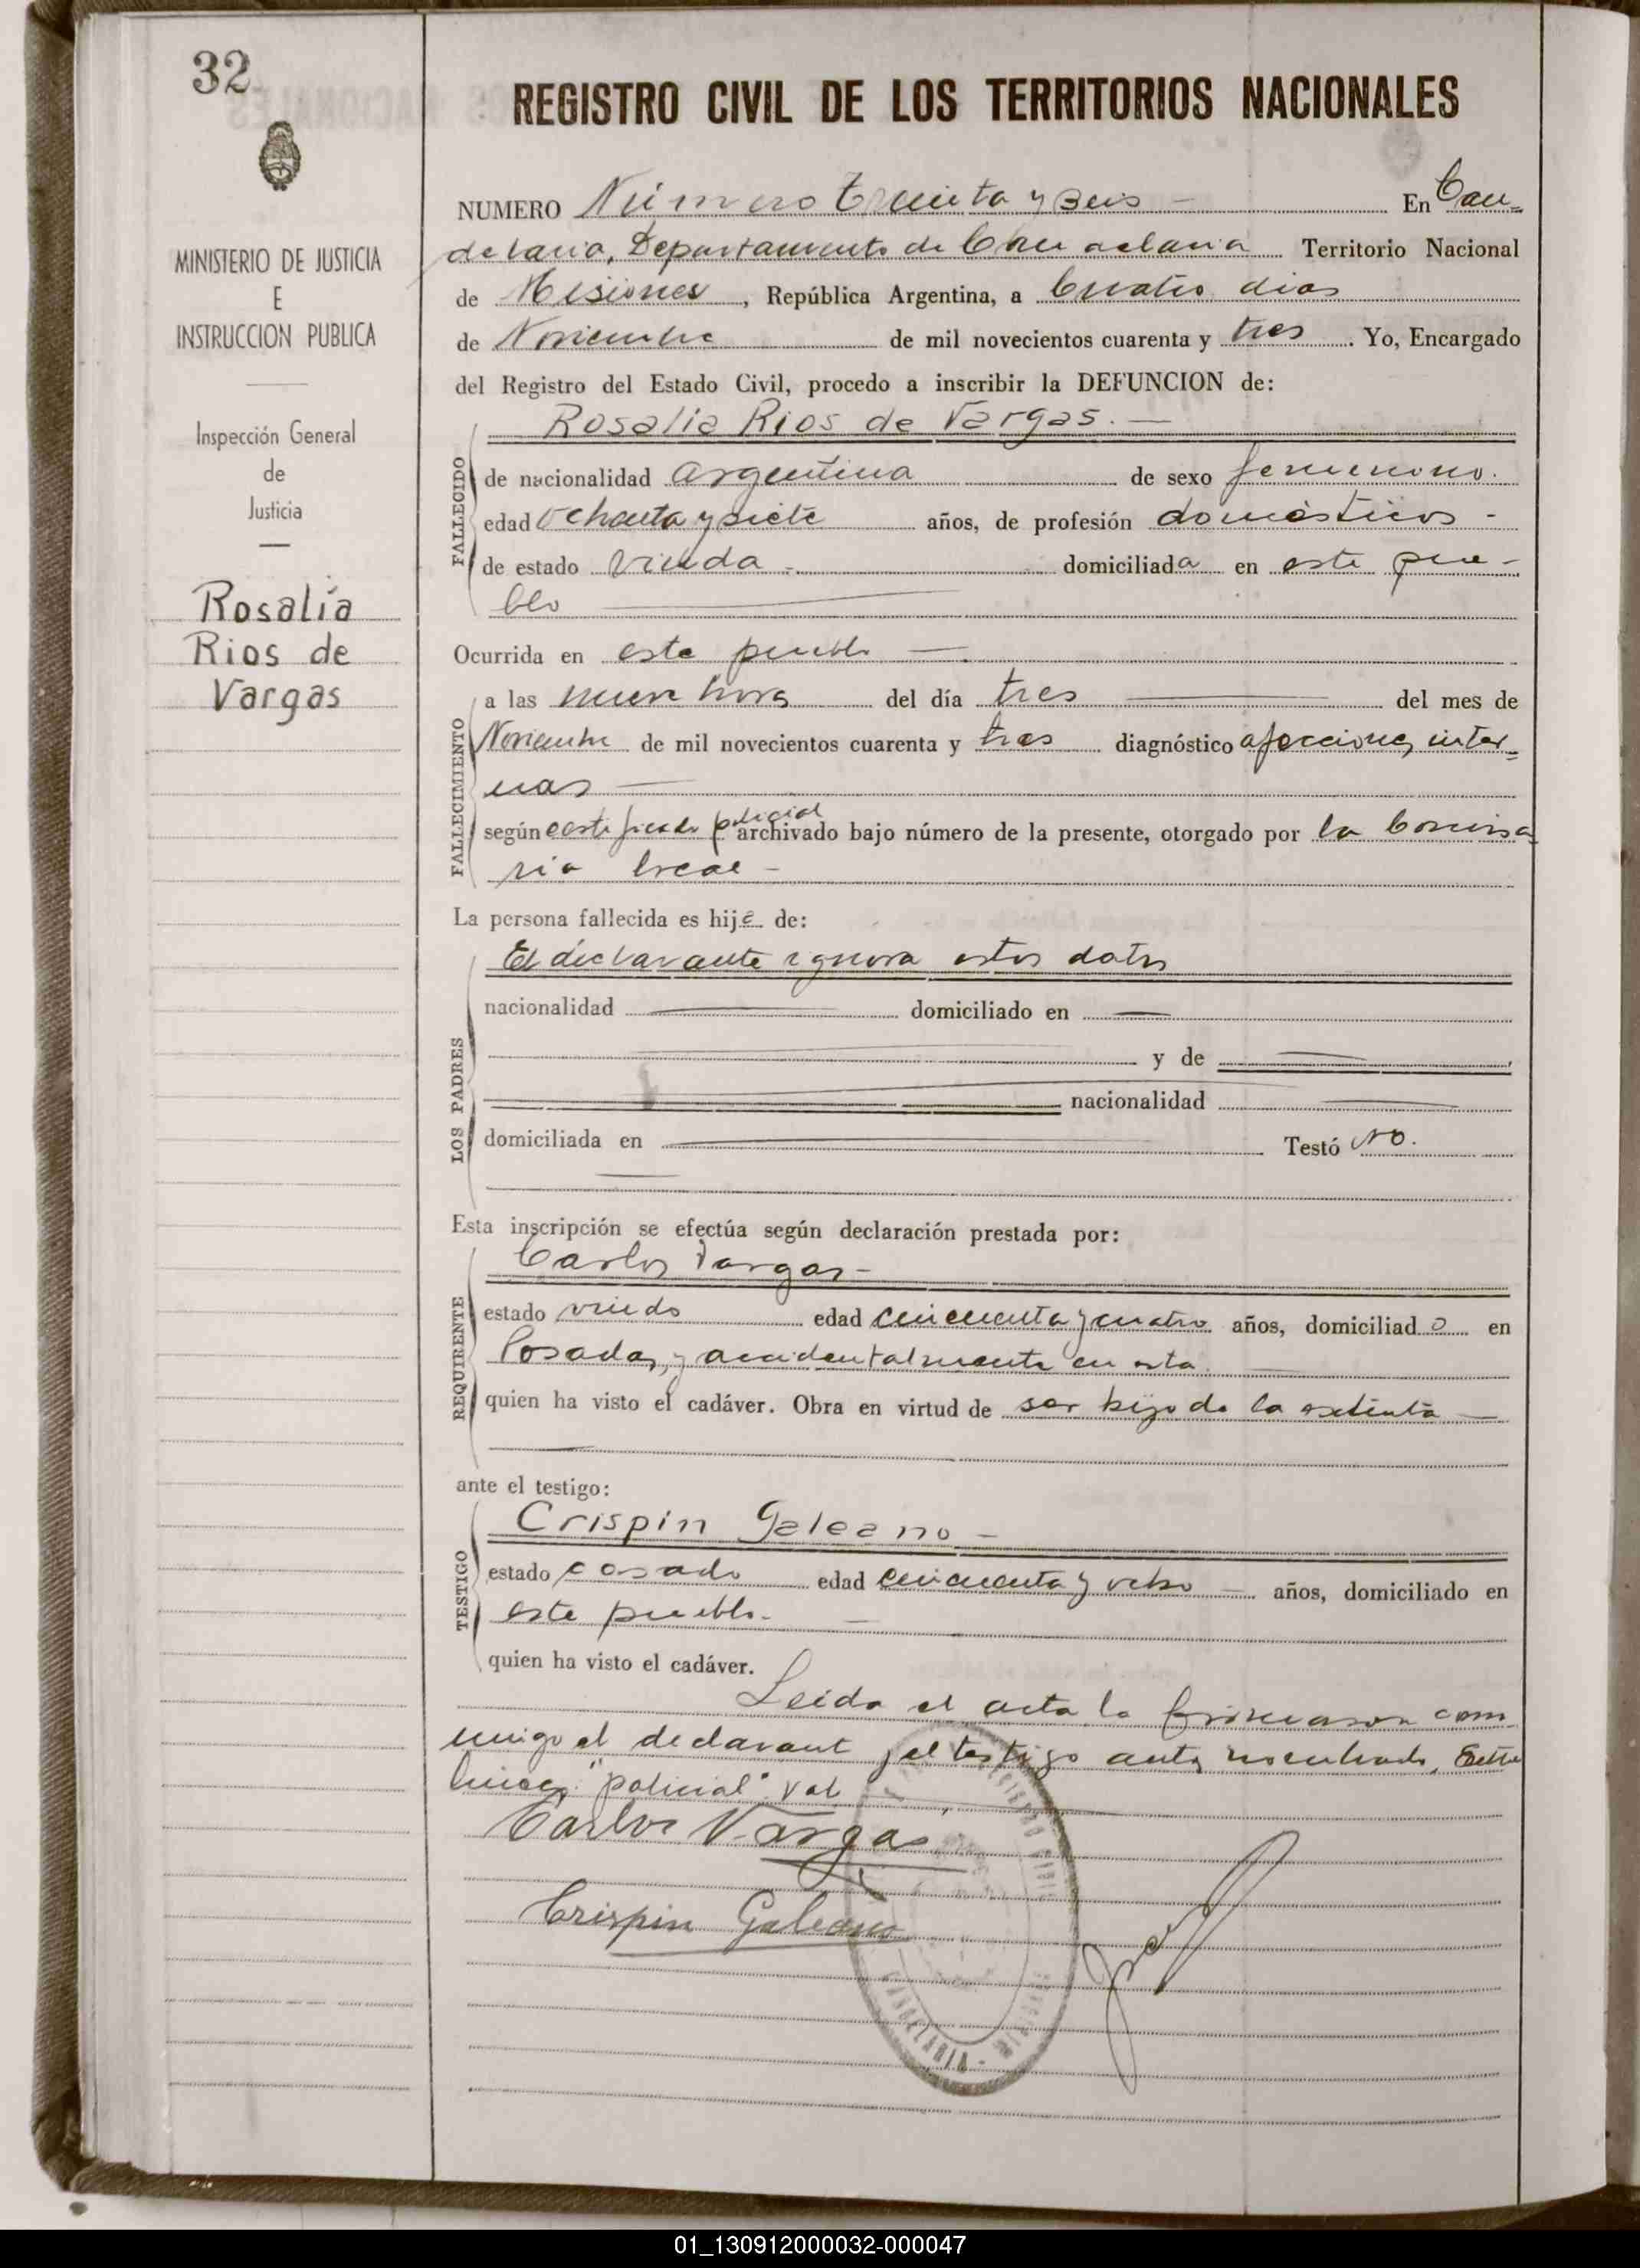 32
MINISTERIO DE JUSTICIA
E
INSTRUCCION PUBLICA
Inspección General
de
Justicia
Rosalía
Rios de
Vargas
REGISTRO CIVIL DE LOS TERRITORIOS NACIONALES
NUMERO Número treinta y seis - En Can-
delaria, Departamento de Candelaria Territorio Nacional
de Misiones, República Argentina, a Cuatro dias
de Noviembre de mil novecientos cuarenta y tres. Yo, Encargado
del Registro del Estado Civil, procedo a inscribir la DEFUNCION de:
Rosalia Rios de Vargas. —
FALLECIDO
de nacionalidad argentina de sexo femenino.
edad Ochenta y siete años, de profesión domésticos -
de estado Viuda - domiciliada en este pue-
blo
Ocurrida en este pueblo —
FALLECIMIENTO
a las nueve horas del día tres — del mes de
Noviembre de mil novecientos cuarenta y tres diagnóstico afecciones inter-
nas —
según certificado policial archivado bajo número de la presente, otorgado por la Comisa
ría local -
La persona fallecida es hija de:
LOS PADRES
El declarante ignora estos datos
nacionalidad — domiciliado en —
y de —
nacionalidad —
domiciliada en — Testó No.
Esta inscripción se efectúa según declaración prestada por:
REQUIRENTE
Carlos Vargas -
estado viudo edad cincuenta y cuatro años, domiciliado en
Posadas, y accidentalmente en esta
quien ha visto el cadáver. Obra en virtud de ser hijo de la extinta —
ante el testigo:
TESTIGO
Crispin Galeano -
estado casado edad cincuenta y ocho — años, domiciliado en
este pueblo. —
quien ha visto el cadáver.
Leida el acta la firmaron con
migo el declarante y el testigo antes nombrado, Entre
lineas: "policial" Vale
Carlos Vargas
Crispin Galeano
CANDELARIA
01_130912000032-000047